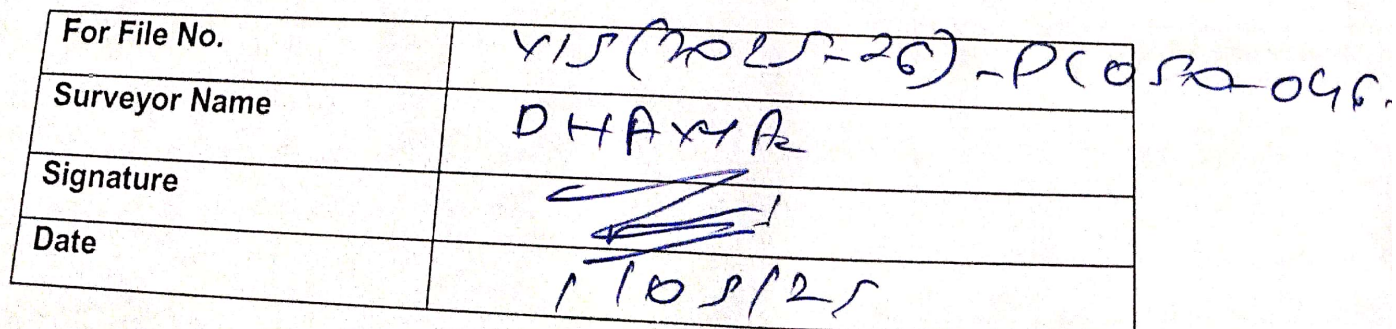 For File No. VIS(2025-26)-PC050-046.
Surveyor Name DHAWAL
Signature
Date 1/05/25